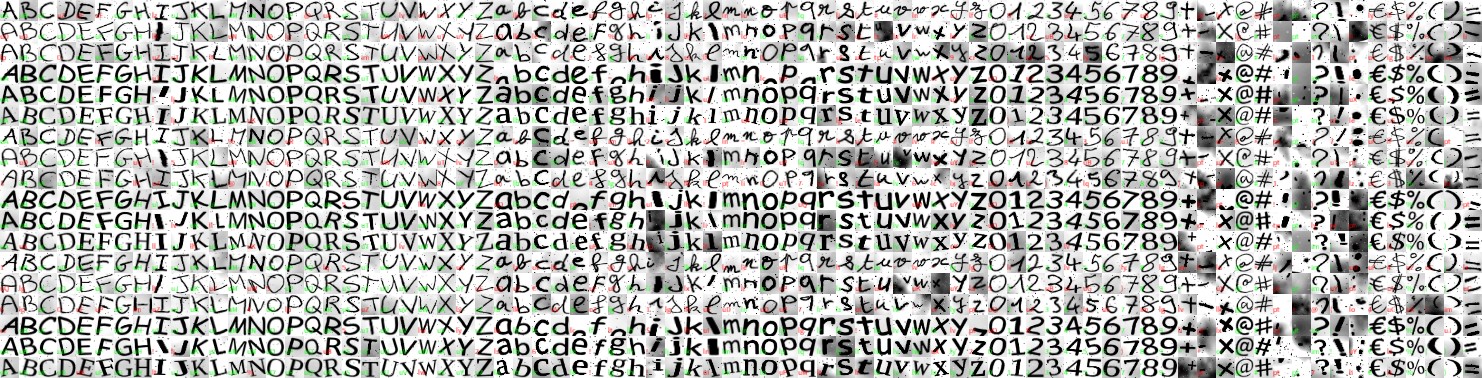 ABCDEFGHIJKLMNOPQRSTUVWXYZabcdefghijklmnopqrstuvwxyz0123456789+-×@#,.?!:€$%()=
ABCDEFGHIJKLMNOPQRSTUVWXYZabcdefghijklmnopqrstuvwxyz0123456789+-×@#,.?!:€$%()=
ABCDEFGHIJKLMNOPQRSTUVWXYZabcdefghijklmnopqrstuvwxyz0123456789+-×@#,.?!:€$%()=
ABCDEFGHIJKLMNOPQRSTUVWXYZabcdefghijklmnopqrstuvwxyz0123456789+-×@#,.?!:€$%()=
ABCDEFGHIJKLMNOPQRSTUVWXYZabcdefghijklmnopqrstuvwxyz0123456789+-×@#,.?!:€$%()=
ABCDEFGHIJKLMNOPQRSTUVWXYZabcdefghijklmnopqrstuvwxyz0123456789+-×@#,.?!:€$%()=
ABCDEFGHIJKLMNOPQRSTUVWXYZabcdefghijklmnopqrstuvwxyz0123456789+-×@#,.?!:€$%()=
ABCDEFGHIJKLMNOPQRSTUVWXYZabcdefghijklmnopqrstuvwxyz0123456789+-×@#,.?!:€$%()=
ABCDEFGHIJKLMNOPQRSTUVWXYZabcdefghijklmnopqrstuvwxyz0123456789+-×@#,.?!:€$%()=
ABCDEFGHIJKLMNOPQRSTUVWXYZabcdefghijklmnopqrstuvwxyz0123456789+-×@#,.?!:€$%()=
ABCDEFGHIJKLMNOPQRSTUVWXYZabcdefghijklmnopqrstuvwxyz0123456789+-×@#,.?!:€$%()=
ABCDEFGHIJKLMNOPQRSTUVWXYZabcdefghijklmnopqrstuvwxyz0123456789+-×@#,.?!:€$%()=
ABCDEFGHIJKLMNOPQRSTUVWXYZabcdefghijklmnopqrstuvwxyz0123456789+-×@#,.?!:€$%()=
ABCDEFGHIJKLMNOPQRSTUVWXYZabcdefghijklmnopqrstuvwxyz0123456789+-×@#,.?!:€$%()=
ABCDEFGHIJKLMNOPQRSTUVWXYZabcdefghijklmnopqrstuvwxyz0123456789+-×@#,.?!:€$%()=
ABCDEFGHIJKLMNOPQRSTUVWXYZabcdefghijklmnopqrstuvwxyz0123456789+-×@#,.?!:€$%()=
ABCDEFGHIJKLMNOPQRSTUVWXYZabcdefghijklmnopqrstuvwxyz0123456789+-×@#,.?!:€$%()=
ABCDEFGHIJKLMNOPQRSTUVWXYZabcdefghijklmnopqrstuvwxyz0123456789+-×@#,.?!:€$%()=